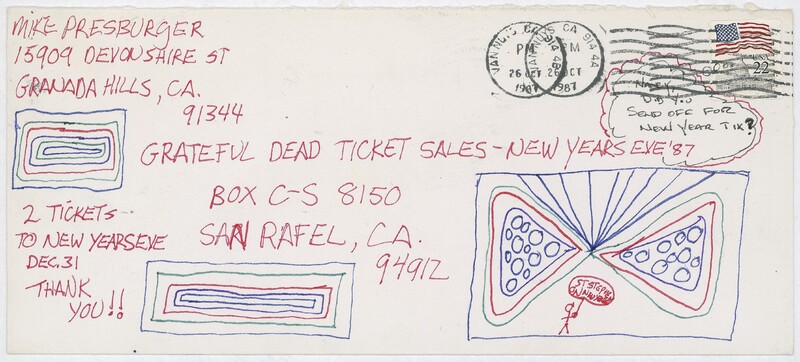 MIKE PRESBURGER
15909 DEVONSHIRE ST
GRANADA HILLS, CA.
91344
VAN NUYS, CA 914
PM
26 OCT
1987
VAN NUYS, CA 914
PM
26 OCT
1987
USA
22
DID YOU
SEND OFF FOR
NEW YEAR TIX?
GRATEFUL DEAD TICKET SALES - NEW YEARS EVE '87
BOX C-S 8150
SAN RAFEL, CA.
94912
2 TICKETS
TO NEW YEARS EVE
DEC. 31
THANK
YOU!!
ST STEPHEN
ON NEW YEARS